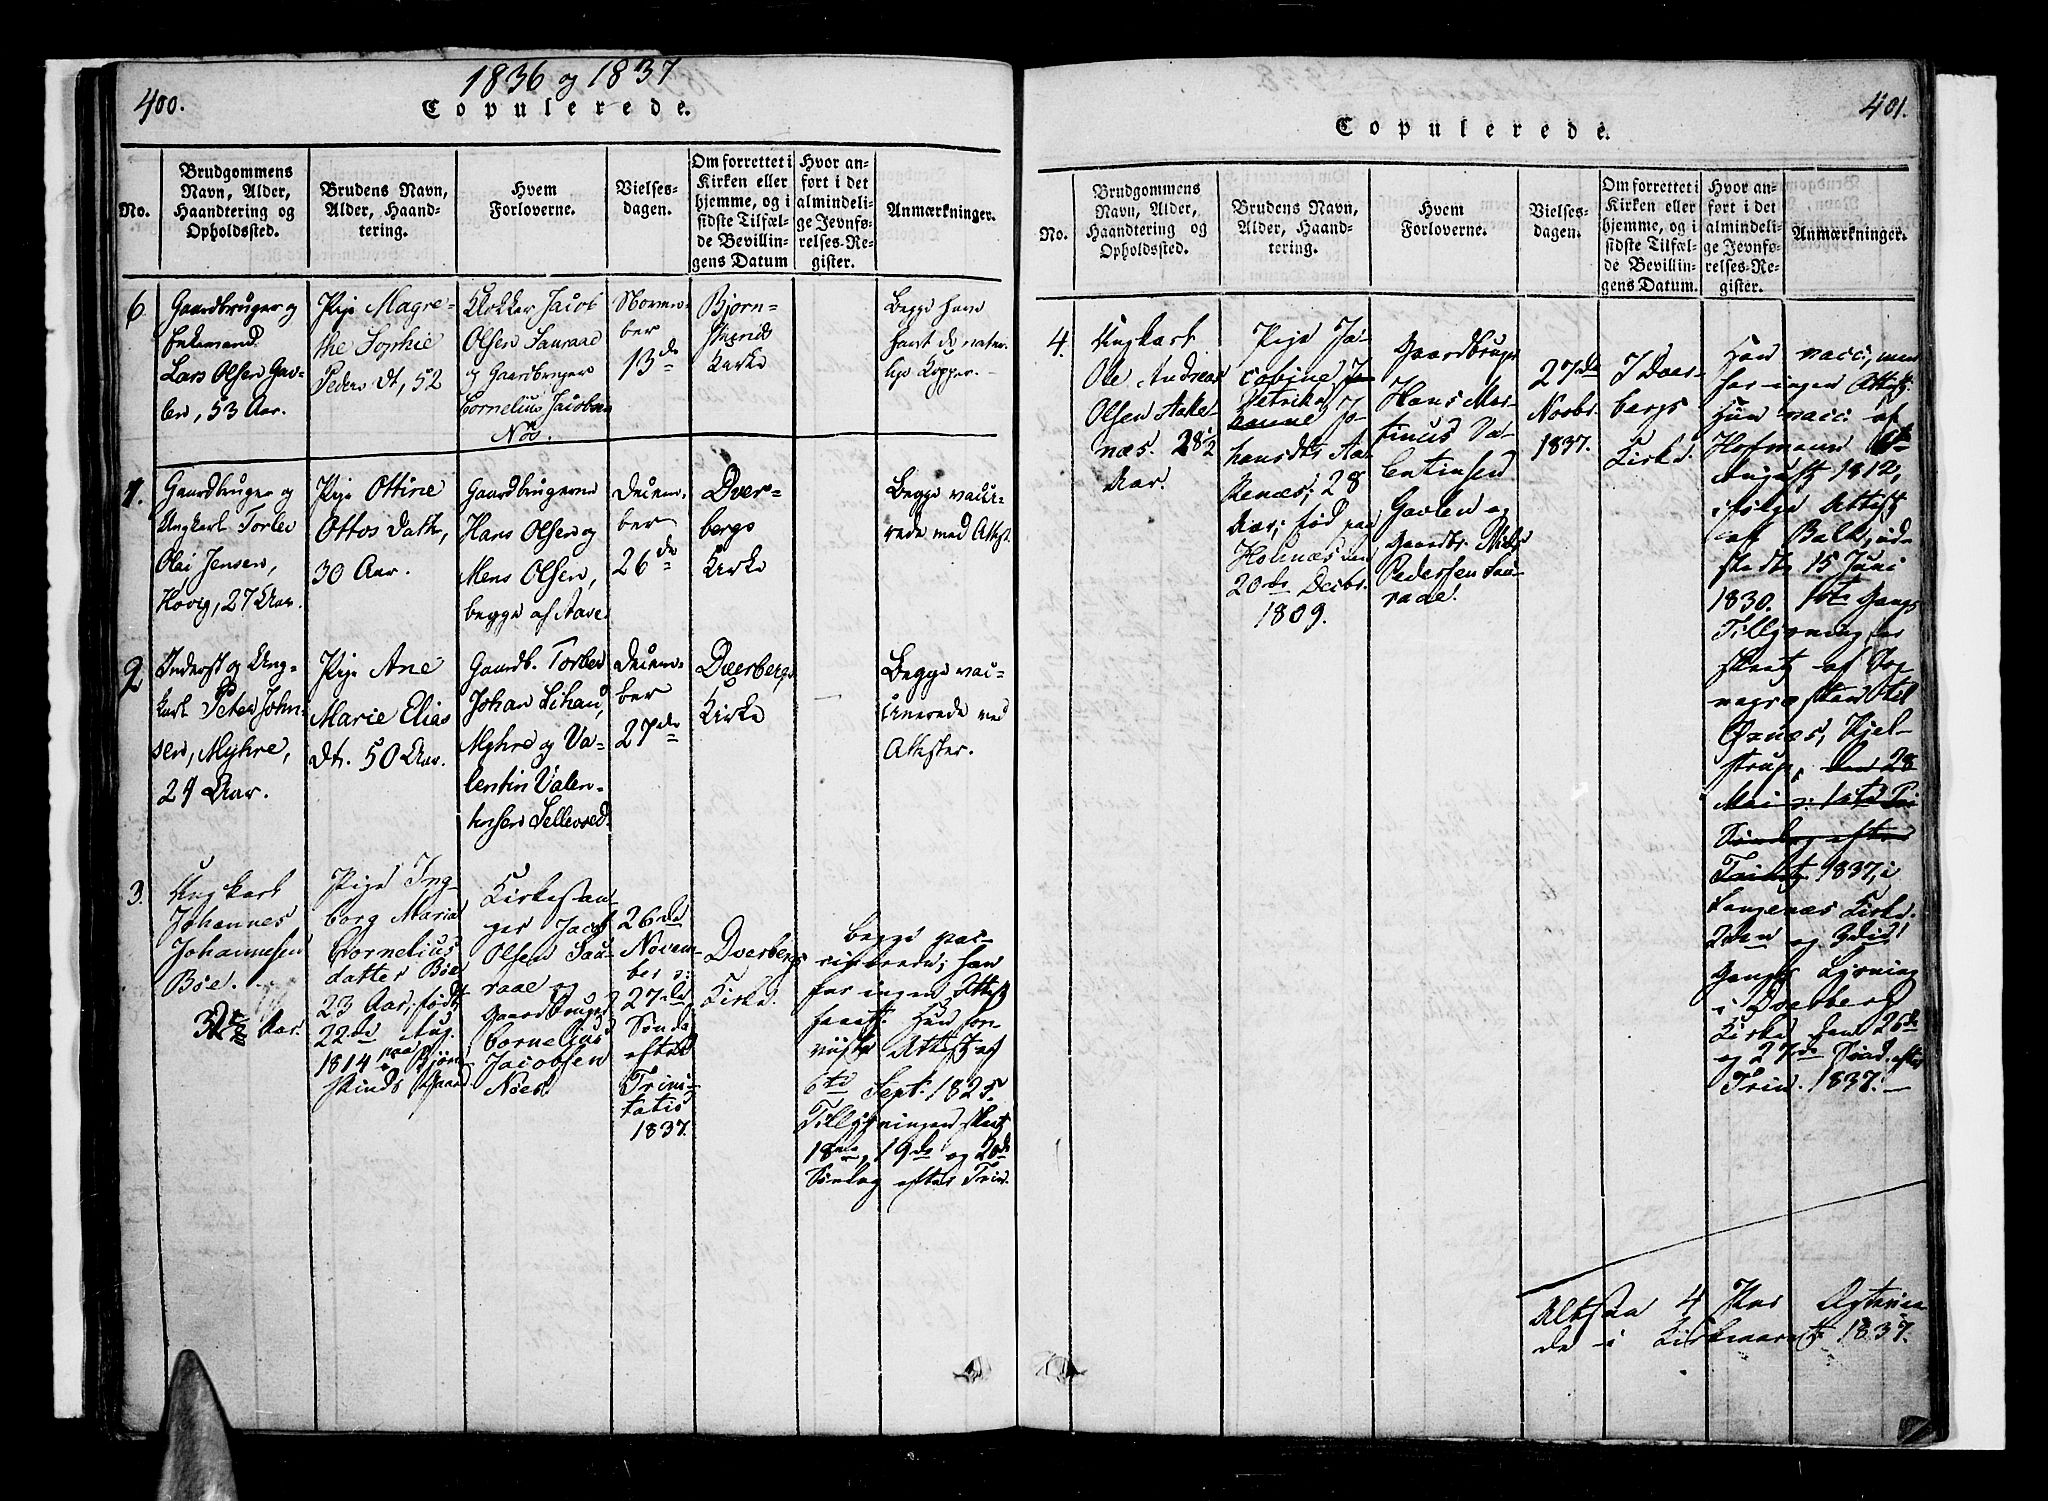 1836 og 1837
400.
Copulerede.
No.
Brudgommens
Navn, Alder,
Haandtering og
Opholdssted.
Brudens Navn,
Alder, Haand-
tering.
Hvem
Forloverne.
Vielses-
dagen.
Om forrettet i
Kirken eller
hjemme, og i
sidste Tilfæl-
de Bevillin-
gens Datum
Hvor an-
ført i det
almindeli-
ge Jevnfø-
relses-Re-
gister.
Anmærkninger.
6
Gaardbruger og
Enkemand
Lars Olsen Gav-
len, 53 Aar.
Pige Magre-
the Sophie
Peders dt, 52
Klokker Jacob
Olsen Sauraae
og Gaardbruger
Cornelius Jacobsen
Nøs.
Novem-
ber
13de
Bjørn-
skinds
Kirke
Begge have
havt de natur-
lige Kopper.
1.
Gaardbruger og
Ungkarl Torber
Olai Jensen,
Hovig, 27 Aar.
Pige Ottine
Ottos Datter,
30 Aar.
Gaardbrugerne
Hans Olsen og
Mens Olsen,
begge af Aase
Decem-
ber
26de
Dver-
bergs
Kirke
Begge vacci-
rede med Attest.
2
Inderst og Ung-
karl Peter John-
sen, Myhre,
24 Aar.
Pige Ane
Marie Elias
dt. 50 Aar.
Gaardb. Torber
Johan Schau,
Myhre og Va-
lentin Valen-
tinsen Sellevold.
Decem-
ber
27de
Dverbergs
Kirke
Begge vac-
cinerede med
Attester.
3.
Ungkarl
Johannes
Johannesen
Bøe.
Aar.
Pige Ing-
borg Maria
Cornelius
datter Bøe
23 Aar, født
22de Aug.
1814 paa Bjørn
skinds Gaard
Kirkesan-
ger Jacob
Olsen Sau-
raae og
Gaardbruger
Cornelius
Jacobsen
Nøss.
26de
Novem-
ber o:
27de
Sønda
efter
Trini-
tatis
1837.
Dverbergs
Kirke.
Begge vac-
cinerede; han
har ingen Attest
havt. Hun for-
viiste Attest af
6te Sept. 1825.
Tillysningen skeet
18de, 19de og 20de
Søndag efter Trin.
401.
Copulerede.
No.
Brudgommens
Navn, Alder,
Haandtering og
Opholdssted.
Brudens Navn,
Alder, Haand-
tering.
Hvem
Forloverne.
Vielses-
dagen.
Om forrettet i
Kirken eller
hjemme, og i
sidste Tilfæl-
de Bevillin-
gens Datum.
Hvor an-
ført i det
almindeli-
ge Jevnfø-
relses-Re-
gister.
Anmærkninger.
4.
Ungkarl
Ole Andreas
Olsen Aake-
næs. 28 1/2
Aar.
Pige Ja-
cobine
Petrika Jo-
hansdtr Aa-
kenæs; 28
Aar; født paa
Holmæs den
20de Decbr.
1809.
Gaardbruger
Hans Mar-
tinus Va-
lentinsen
Gavlen og
Gaardbr. Niels
Pedersen Sau-
raae.
27de
Novbr.
1837.
I Dver-
bergs
Kirke.
Han vacc., men
har ingen Attest.
Hun vacc. af
Hofmann
August 1812,
ifølge Attest
af Balk, ud-
stedt 15 Juni
1830. 1ste Gangs
Tillysning er
skeet af Sog-
nepræsten til
Øxnæs, Hjel-
strup, den 28
Mai o: 1ste
Søndag efter
Trinit. 1837, i
Langenæs Kirke.
2den og 3die
Gangs Lysning
i Dverberg
Kirke den 26de
og 27de Sønd. efter
Trin. 1837.
Altsaa 4 Par
de i Kirkeaaret 1837.